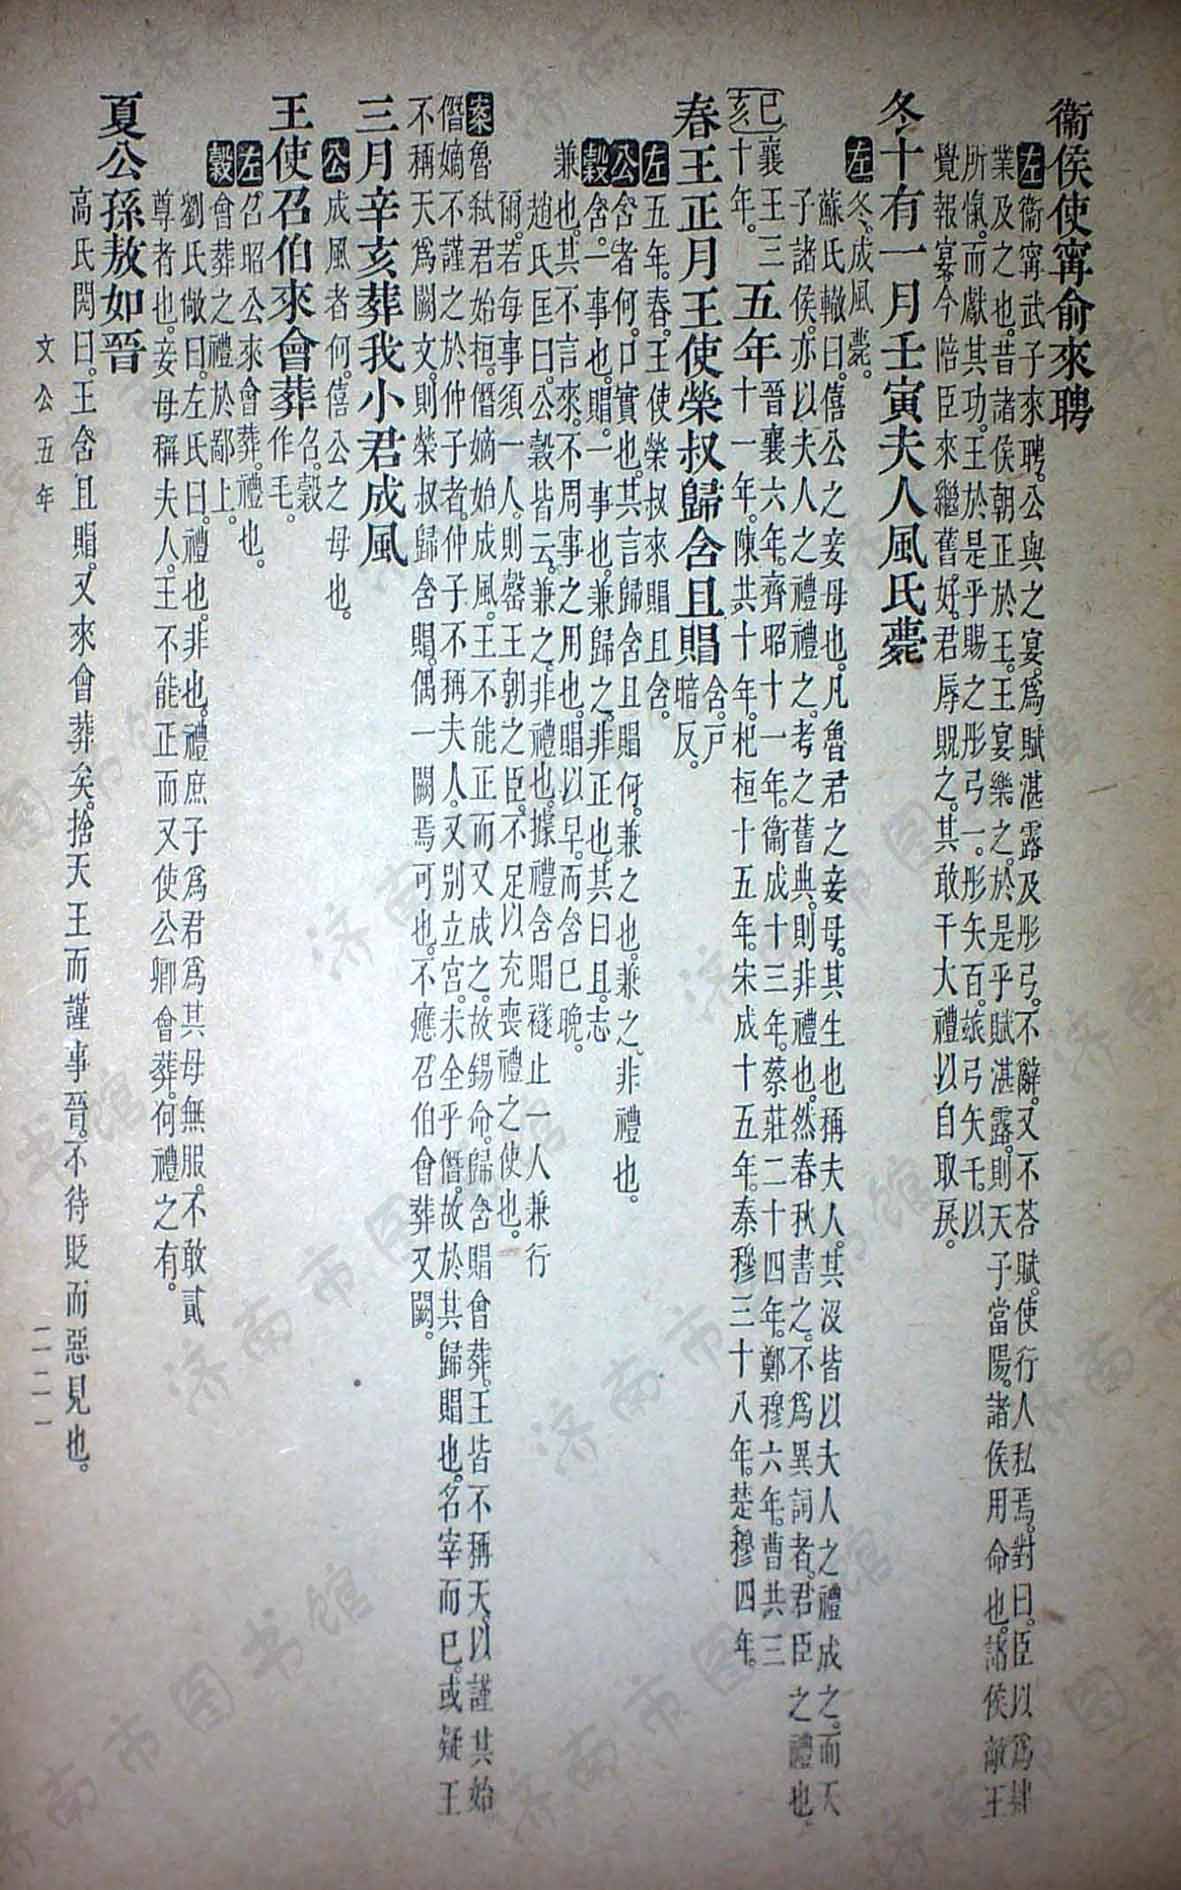 衞侯使甯俞來聘
左衞甯武子來聘。公與之宴。爲賦湛露及彤弓。不辭。又不荅賦。使行人私焉。對曰。臣以爲肄
業及之也。昔諸侯朝正於王。王宴樂之。於是乎賦湛露。則天子當陽。諸侯用命也。諸侯敵王
所愾。而獻其功。王於是乎賜之彤弓一。彤矢百。玈弓矢千。以
覺報宴。今陪臣來繼舊好。君辱貺之。其敢干大禮以自取戾。
冬十有一月壬寅夫人風氏薨
左冬。成風薨。
蘇氏轍曰。僖公之妾母也。凡魯君之妾母。其生也稱夫人。其沒皆以夫人之禮成之。而天
子諸侯。亦以夫人之禮禮之。考之舊典。則非禮也。然春秋書之。不爲異詞者。君臣之禮也
己亥
襄王三十年。
五年
晉襄六年。齊昭十一年。衞成十三年。蔡莊二十四年。鄭穆六年。曹共三
十一年。陳共十年。杞桓十五年。宋成十五年。秦穆三十八年。楚穆四年。
春王正月王使榮叔歸含且賵
含。戶
暗反。
左五年。春。王使榮叔來賵且含。
公含者何。口實也。其言歸含且賵何。兼之也。兼之、非禮也。
穀含。一事也。賵。一事也。兼歸之。非正也。其曰且。志
兼也。其不言來。不周事之用也。賵以早。而含已晚。
趙氏匡曰。公穀皆云。兼之。非禮也。據禮含賵襚止一人兼行
爾。若每事須一人。則罄王朝之臣。不足以充喪禮之使也。
案魯弒君始桓。僭嫡始成風。王不能正而又成之。故錫命。歸含賵會葬。王皆不稱天。以謹其始
僭嫡不謹之於仲子者。仲子不稱夫人。又別立宮。未全乎僭。故於其歸賵也。名宰而已。或疑王
不稱天爲闕文。則榮叔歸含賵。偶一闕焉可也。不應召伯會葬又闕。
三月辛亥葬我小君成風
公成風者何。僖公之母也。
王使召伯來會葬
召。穀
作毛。
左召昭公來會葬。禮也。
穀會葬之禮於鄙上。
劉氏敞曰。左氏曰。禮也。非也。禮庶子爲君爲其母無服。不敢貳
尊者也。妾母稱夫人。王不能正而又使公卿會葬。何禮之有。
夏公孫敖如晉
高氏閌曰。王含且賵。又來會葬矣。捨天王而謹事晉。不待貶而惡見也。
文公五年
二二一